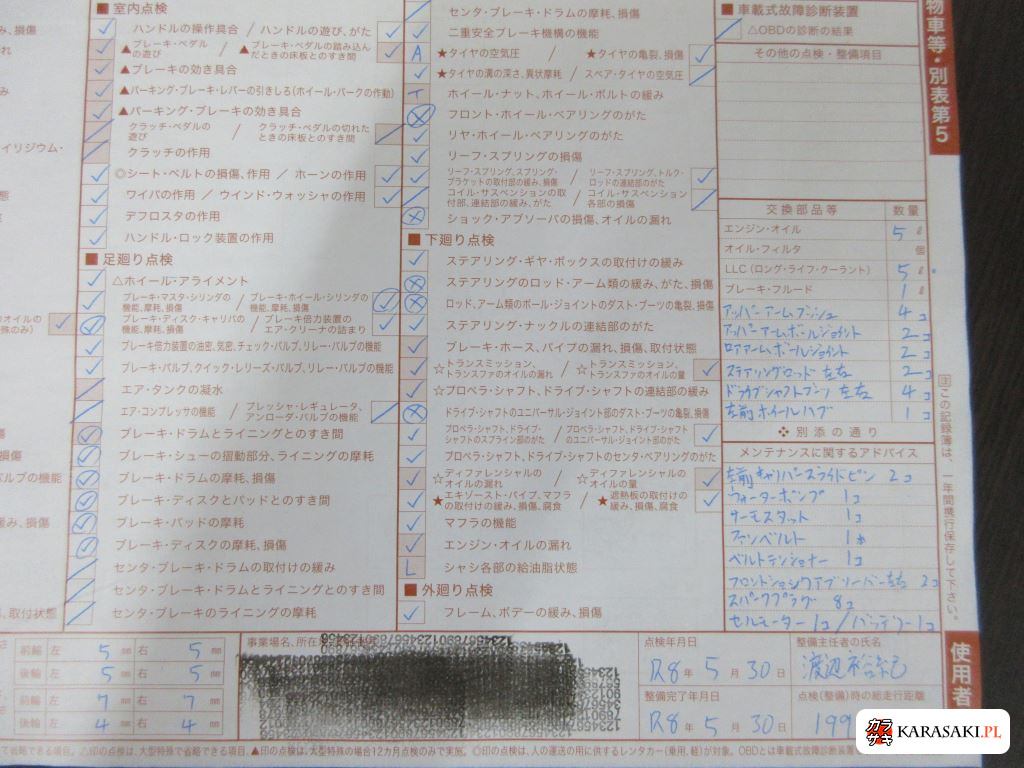 ■ 室内点検
ハンドルの操作具合 / ハンドルの遊び、がた
▲ブレーキ・ペダルの遊び / ▲ブレーキ・ペダルの踏み込んだときの床板とのすき間
▲ブレーキの効き具合
▲パーキング・ブレーキ・レバーの引きしろ(ホイール・パークの作動)
▲パーキング・ブレーキの効き具合
クラッチ・ペダルの遊び / クラッチ・ペダルの切れたときの床板とのすき間
クラッチの作用
◎シート・ベルトの損傷、作用 / ホーンの作用
ワイパの作用 / ウインド・ウォッシャの作用
デフロスタの作用
ハンドル・ロック装置の作用
■ 足廻り点検
△ホイール・アライメント
ブレーキ・マスタ・シリンダの機能、摩耗、損傷 / ブレーキ・ホイール・シリンダの機能、摩耗、損傷
ブレーキ・ディスク・キャリパの機能、摩耗、損傷 / ブレーキ倍力装置のエア・クリーナの詰まり
ブレーキ倍力装置の油密、気密、チェック・バルブ、リレー・バルブの機能
ブレーキ・バルブ、クイック・レリーズ・バルブ、リレー・バルブの機能
エア・タンクの凝水
エア・コンプレッサの機能 / プレッシャ・レギュレータ、アンローダ・バルブの機能
ブレーキ・ドラムとライニングとのすき間
ブレーキ・シューの摺動部分、ライニングの摩耗
ブレーキ・ドラムの摩耗、損傷
ブレーキ・ディスクとパッドとのすき間
ブレーキ・パッドの摩耗
ブレーキ・ディスクの摩耗、損傷
センタ・ブレーキ・ドラムの取付けの緩み
センタ・ブレーキ・ドラムとライニングとのすき間
センタ・ブレーキのライニングの摩耗
センタ・ブレーキ・ドラムの摩耗、損傷
二重安全ブレーキ機構の機能
A ★タイヤの空気圧 / ★タイヤの亀裂、損傷
★タイヤの溝の深さ、異状摩耗 / スペア・タイヤの空気圧
T ホイール・ナット、ホイール・ボルトの緩み
フロント・ホイール・ベアリングのがた
リヤ・ホイール・ベアリングのがた
リーフ・スプリングの損傷
リーフ・スプリング、スプリング・ブラケットの取付部の緩み、損傷 / リーフ・スプリング、トルク・ロッドの連結部のがた
コイル・サスペンションの取付部、連結部の緩み、がた / コイル・サスペンション各部の損傷
ショック・アブソーバの損傷、オイルの漏れ
■ 下廻り点検
ステアリング・ギヤ・ボックスの取付けの緩み
ステアリングのロッド・アーム類の緩み、がた、損傷
ロッド、アーム類のボール・ジョイントのダスト・ブーツの亀裂、損傷
ステアリング・ナックルの連結部のがた
ブレーキ・ホース、パイプの漏れ、損傷、取付状態
☆トランスミッション、トランスファのオイルの漏れ / ☆トランスミッション、トランスファのオイルの量
☆プロペラ・シャフト、ドライブ・シャフトの連結部の緩み
ドライブ・シャフトのユニバーサル・ジョイント部のダスト・ブーツの亀裂、損傷
プロペラ・シャフト、ドライブ・シャフトのスプライン部のがた / プロペラ・シャフト、ドライブ・シャフトのユニバーサル・ジョイント部のがた
プロペラ・シャフト、ドライブ・シャフトのセンタ・ベアリングのがた
☆ディファレンシャルのオイルの漏れ / ☆ディファレンシャルのオイルの量
★エキゾースト・パイプ、マフラの取付けの緩み、損傷、腐食 / ★遮熱板の取付けの緩み、損傷、腐食
マフラの機能
エンジン・オイルの漏れ
L シャシ各部の給油脂状態
■ 外廻り点検
フレーム、ボデーの緩み、損傷
■ 車載式故障診断装置
△OBDの診断の結果
その他の点検・整備項目
交換部品等 数量
エンジン・オイル 5 ℓ
オイル・フィルタ 個
LLC(ロング・ライフ・クーラント) 5 ℓ
ブレーキ・フルード 1 ℓ
アッパーアームブッシュ 4コ
アッパーアームボールジョイント 2コ
ロアアームボールジョイント 2コ
ステアリングロッド 左右 2コ
ドライブシャフトブーツ 左右 4コ
左前ホイールハブ 1コ
❖ 別添の通り
メンテナンスに関するアドバイス
左前キャリパースライドピン 2コ
ウォーターポンプ 1コ
サーモスタット 1コ
ファンベルト 1本
ベルトテンショナー 1コ
フロントショックアブソーバー左右 2コ
スパークプラグ 8コ
セルモーター 1コ / バッテリー 1コ
物車等・別表第5
注 この記録簿は、一年間携行保存して下さい。
使用者
イリジウム・
み、損傷
オイルの
バルブの機能
緩み、損傷
、取付状態
前輪 左 5 mm 右 5 mm
後輪 左 5 mm 右 5 mm
前輪 左 7 mm 右 7 mm
後輪 左 4 mm 右 4 mm
事業場名、所在
点検年月日
R8 年 5 月 30 日
整備完了年月日
R8 年 5 月 30 日
整備主任者の氏名
点検(整備)時の総走行距離
199
て省略できる項目、△印の点検は、大型特殊で省略できる項目、▲印の点検は、大型特殊の場合12カ月点検のみで実施。◎印の点検は、人の運送の用に供するレンタカー(乗用、軽)が対象。OBDとは車載式故障診断装置
カラサキ KARASAKI.PL